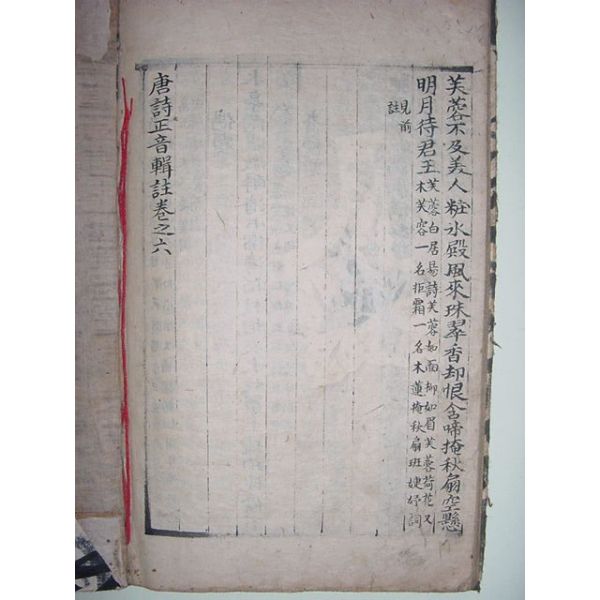 芙蓉不及美人粧水殿風來珠翠香却恨含啼掩秋扇空懸
明月待君王
芙蓉白居易詩芙蓉如面柳如眉芙蓉荷花又
木芙容一名拒霜一名木蓮掩秋扇班婕妤詞
見前
註
唐詩正音輯註卷之六